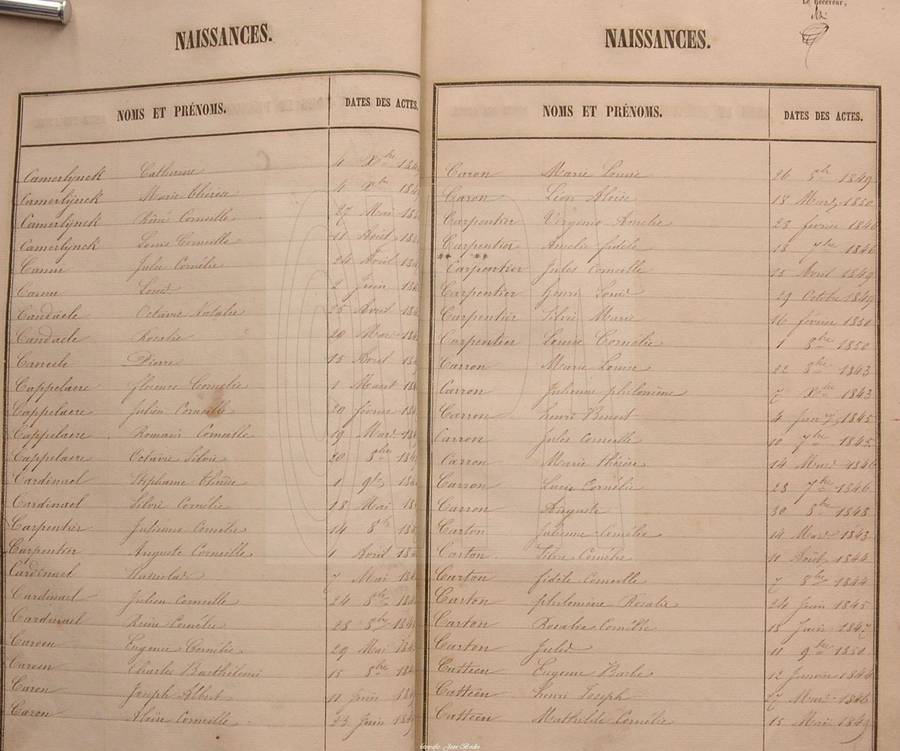 NAISSANCES.
NOMS ET PRÉNOMS. DATES DES ACTES.
Camerlynck Catherine 4 Xbre
Camerlynck Marie Thérèse 4 Xbre
Camerlynck Réné Corneille 27 Mai
Camerlynck Louis Corneille 11 Août
Camu Julie Cornélie 24 Avril
Camu Louis 2 Juin
Candaele Octavie Natalie 25 Avril
Candaele Rosalie 20 Mars
Pierre 15 Avril
Cappelaere Florence Cornelie 1
Cappelaere Julien Corneille 20 février
Cappelaere Romain Corneille 19 Mars
Cappelaere Octavie Silvie 20
Cardinael Stéphanie 1 9bre
Cardinael Silvie Cornélie 18 Mai
Carpentier Julienne Cornélie 14 8bre
Carpentier Auguste Corneille 1 Août
Cardinael 7 Mai
Cardinael Julien Corneille 24 8bre
Cardinael Reine Cornélie 28 8bre
Caroen Eugenie Cornélie 29 Mai
Caroen Charles Barthélémi 15 8bre
Caron Joseph Albert 11 Juin
Caron Aloïse Corneille 23 Juin
Le Receveur,
NAISSANCES.
NOMS ET PRÉNOMS. DATES DES ACTES.
Caron Marie Louise 26 8bre 1849
Caron Léon Aloïse 18 Mars 1850
Carpentier Virginie Amelie 23 février 1846
Carpentier Amelie fidéle 18 7bre 1846
Carpentier Jules Corneille 15 Avril 1849
Carpentier Henri Louis 29 Octobre 1849
Carpentier Silvie Marie 16 février 1850
Carpentier Louise Cornélie 1 8bre 1850
Carron Marie Louise 22 8bre 1843
Carron Julienne philomène 7 Xbre 1843
Carron Henri Benoit 4 1845
Carron Jules Corneille 10 7bre 1845
Carron Marie thérèse 14 Mars 1846
Carron Lucie Cornélie 23 7bre 1846
Carron Auguste 30 8bre 1848
Carton Julienne Cornélie 19 Mars 1843
Carton Silvie Cornélie 11 Août 1844
Carton fidéle Corneille 7 8bre 1844
Carton philomène Rosalie 24 Juin 1845
Carton Rosalie Cornélie 18 Juin 1847
Carton Julie 11 9bre 1850
Catteen Eugene 12 Janvier 1844
Catteen Henri Joseph 17 Mars 1846
Catteen Mathilde Cornélie 15 Mai 1849